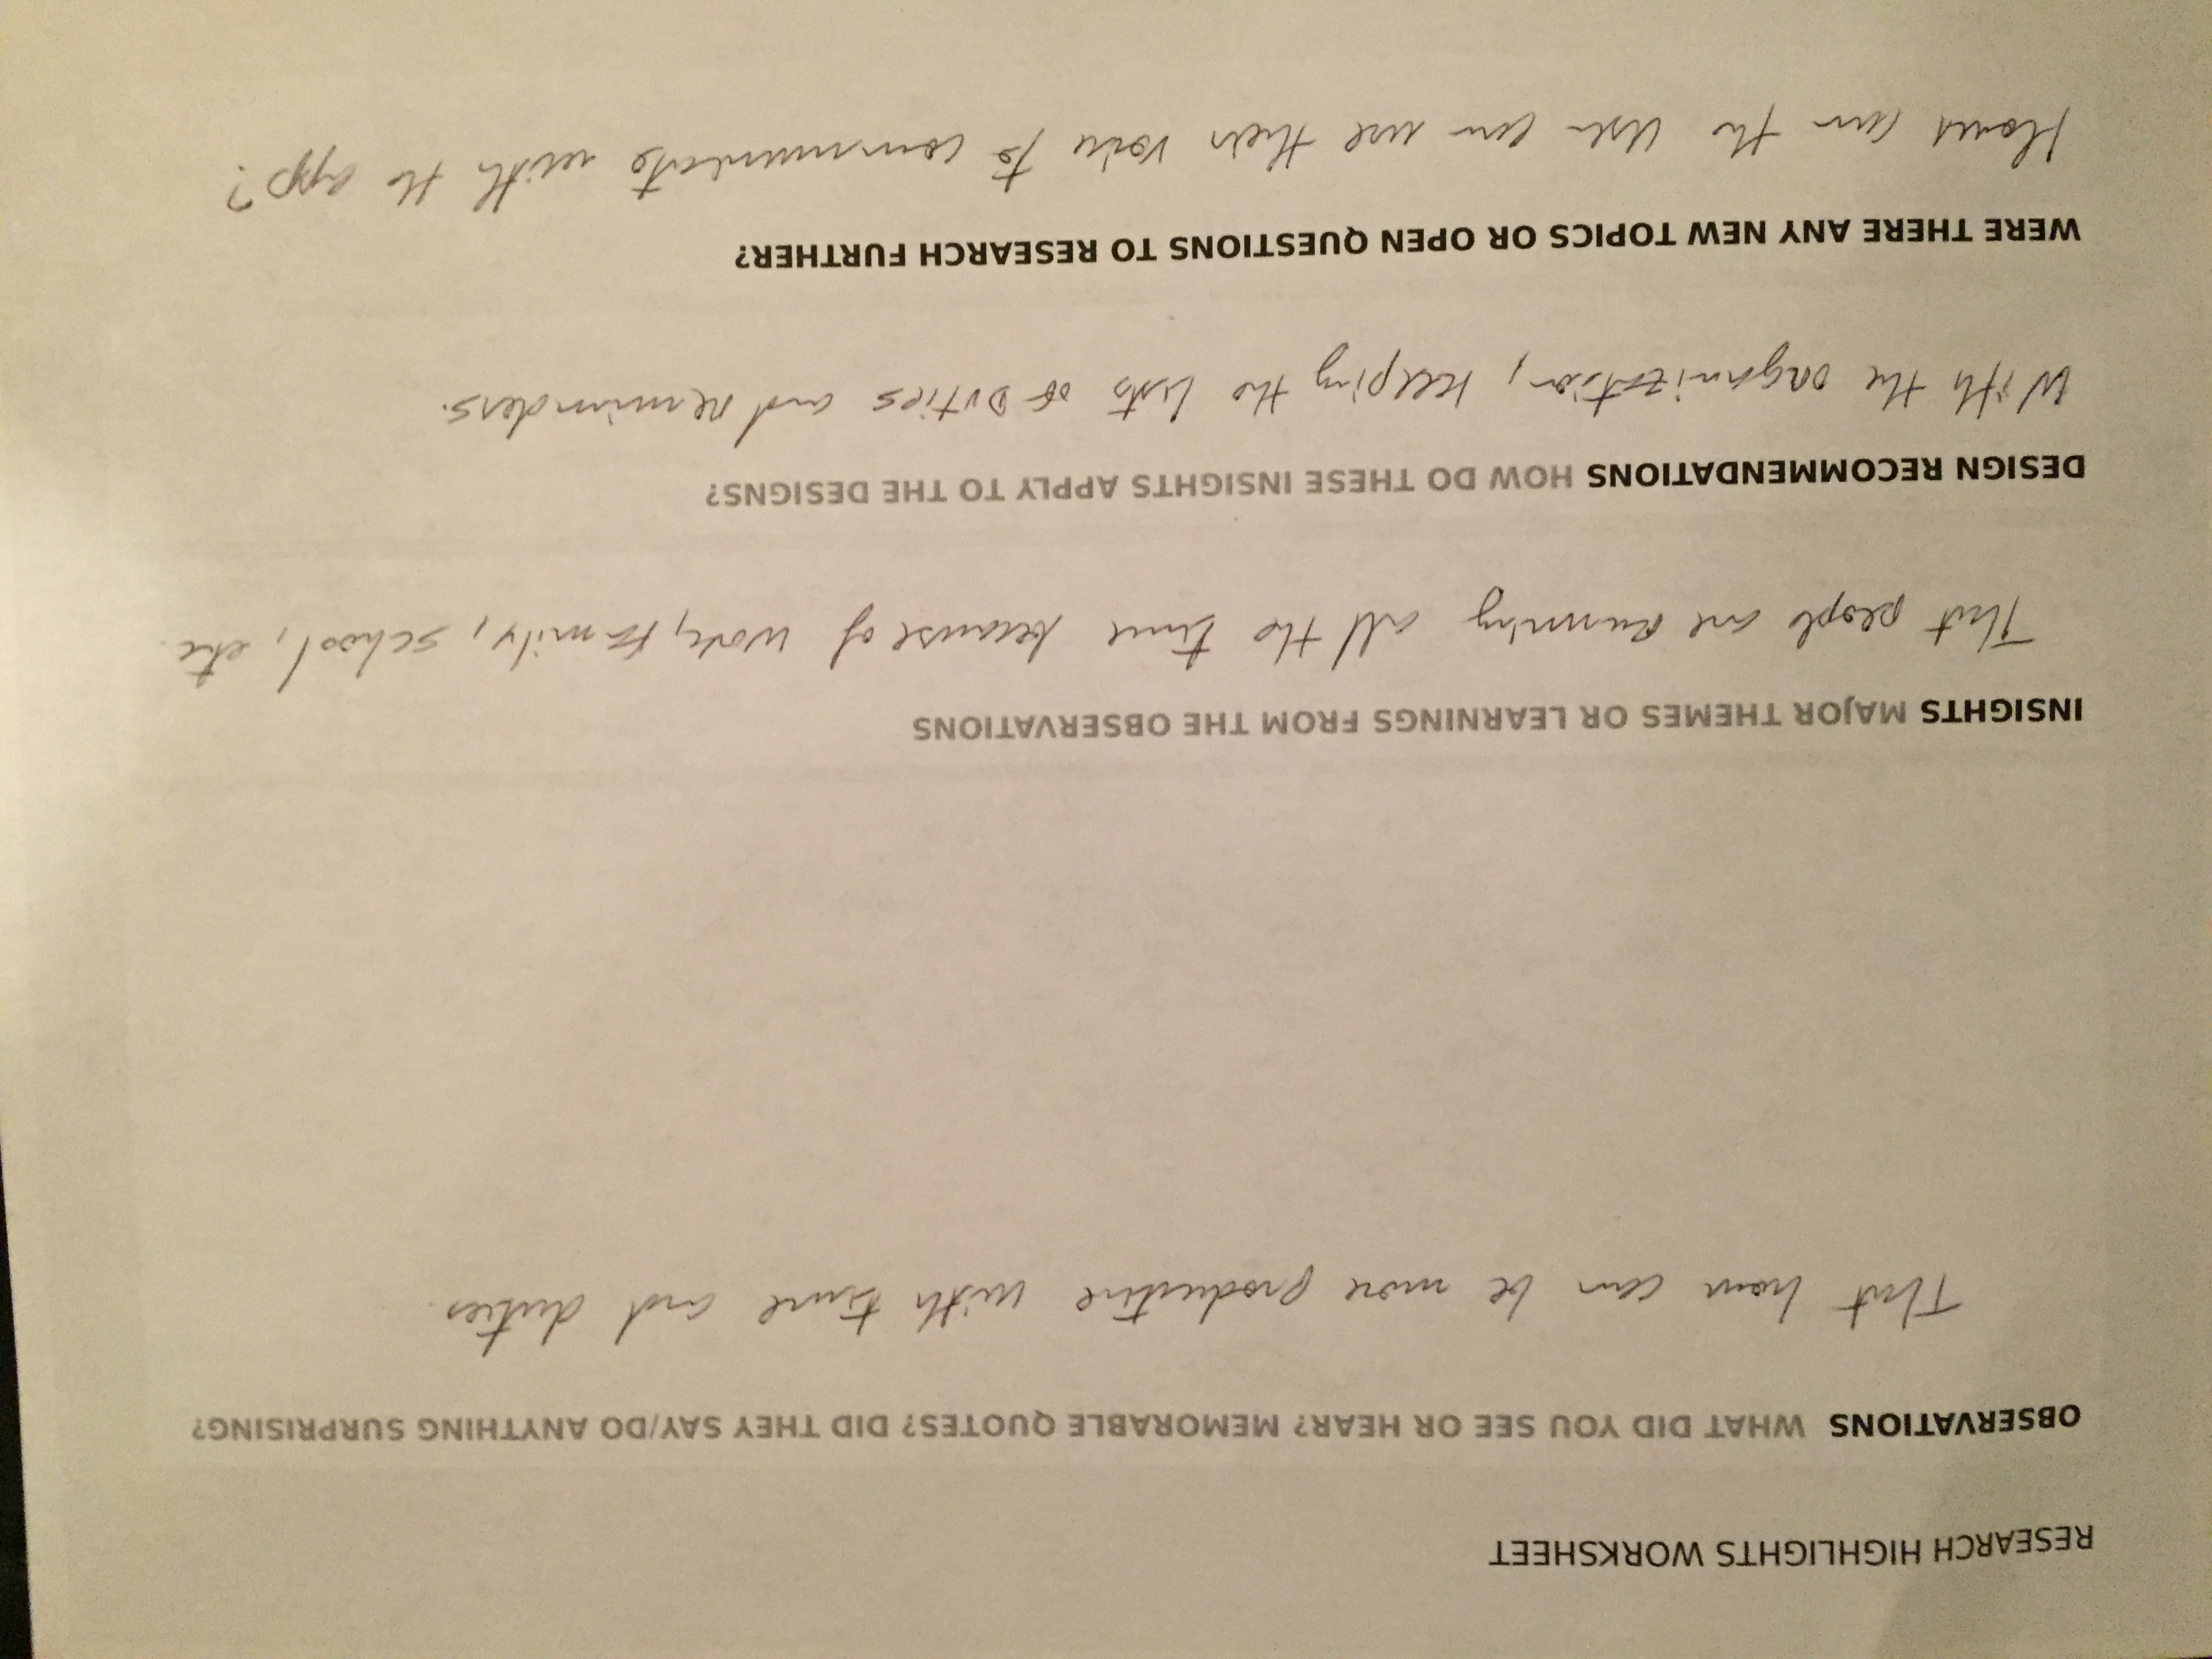 RESEARCH HIGHLIGHTS WORKSHEET
OBSERVATIONS WHAT DID YOU SEE OR HEAR? MEMORABLE QUOTES? DID THEY SAY/DO ANYTHING SURPRISING?
That can be more productive with time and duties.
INSIGHTS MAJOR THEMES OR LEARNINGS FROM THE OBSERVATIONS
That people are Running all the time because of work, family, school, etc.
DESIGN RECOMMENDATIONS HOW DO THESE INSIGHTS APPLY TO THE DESIGNS?
With the organization, keeping the lists of Duties and reminders.
WERE THERE ANY NEW TOPICS OR OPEN QUESTIONS TO RESEARCH FURTHER?
can the User can use their voice to communicate with the app?